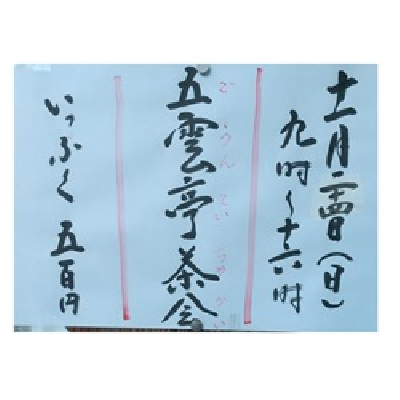 十一月二四日（日）
九时〜十六时
五雲亭茶会
ごうんていちゃかい
いっふく 五百円